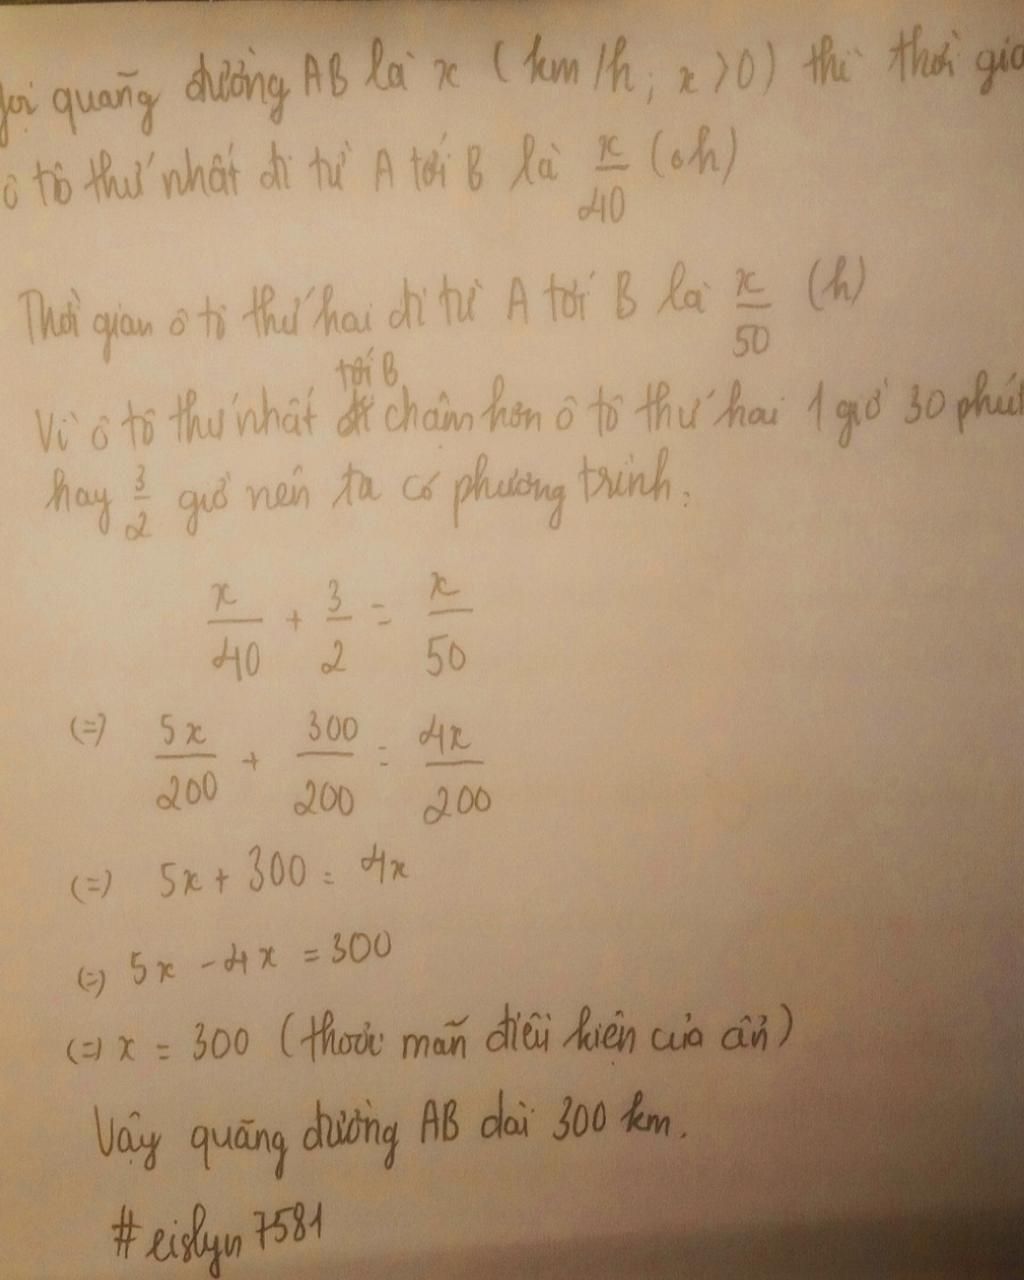 Gọi quãng đường AB là x (km/h; x>0) thì thời gia
ô tô thứ nhất đi từ A tới B là x/40 (h)
Thời gian ô tô thứ hai đi từ A tới B là x/50 (h)
tới B
Vì ô tô thứ nhất chậm hơn ô tô thứ hai 1 giờ 30 phút
hay 3/2 giờ nên ta có phương trình:
x/40 + 3/2 = x/50
(=) 5x/200 + 300/200 = 4x/200
(=) 5x + 300 = 4x
(=) 5x - 4x = 300
(=) x = 300 (thoả mãn điều kiện của ẩn)
Vậy quãng đường AB dài 300 km.
#eislyn7581